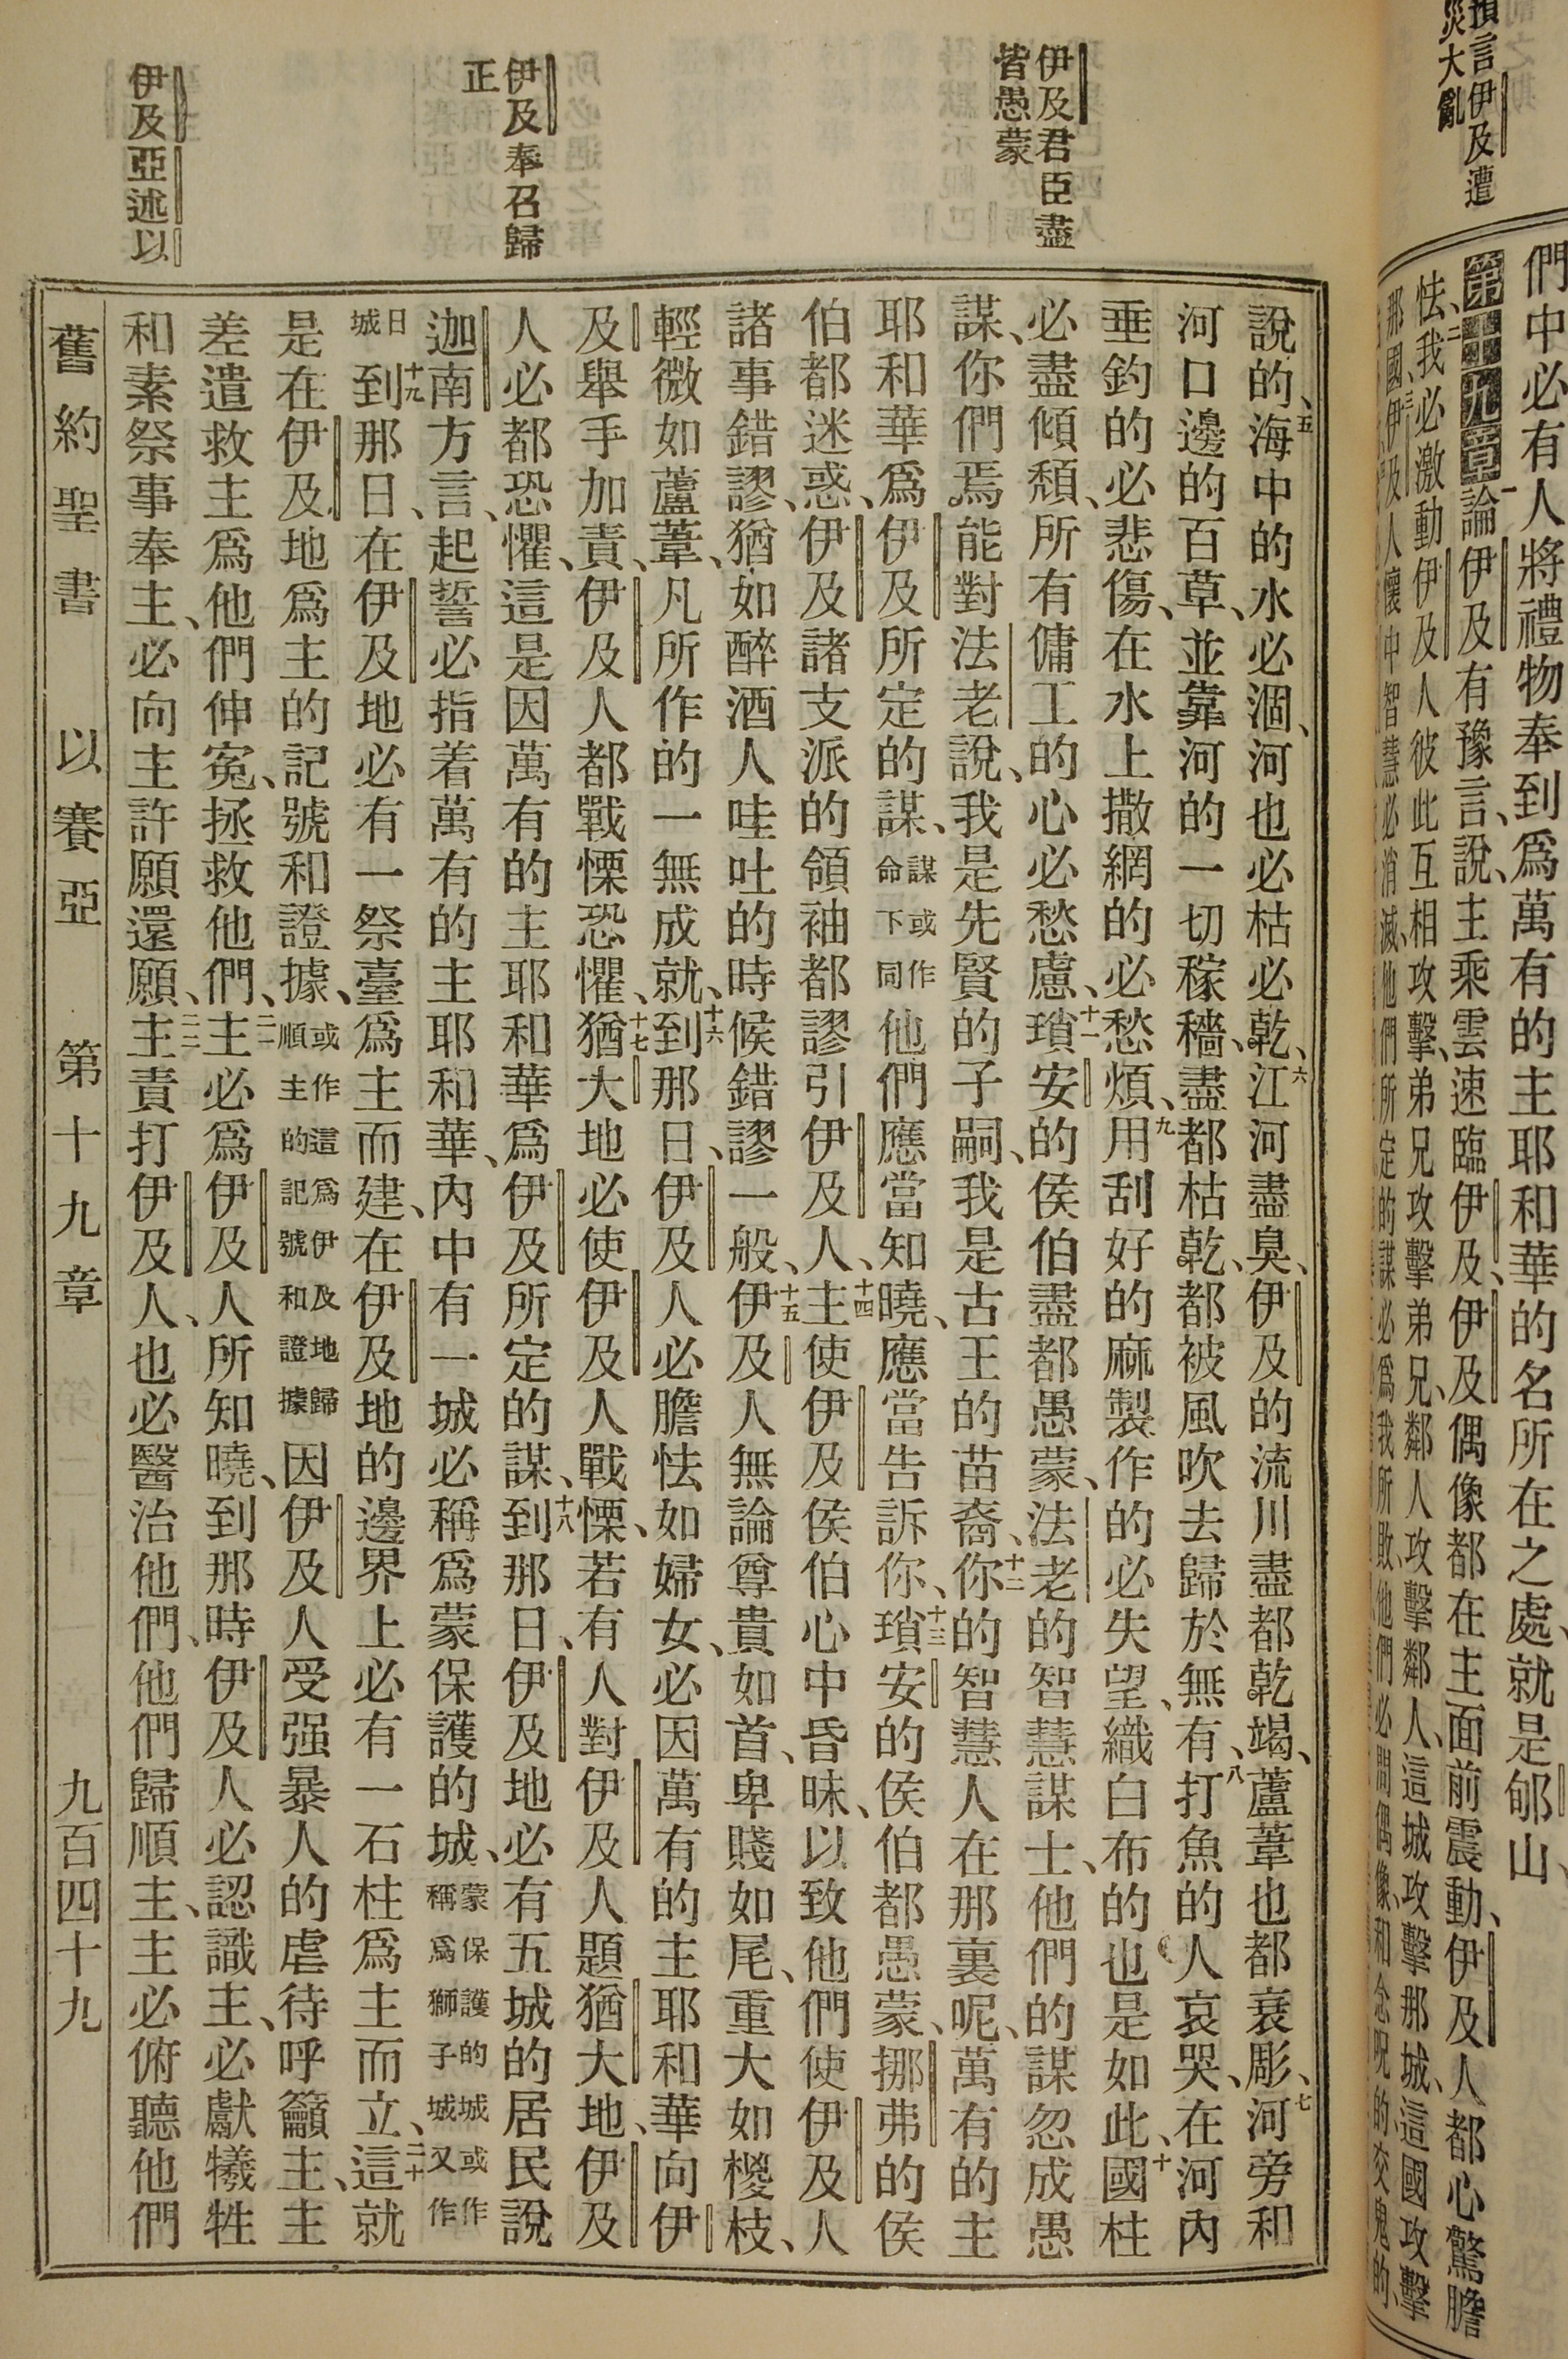 預言伊及遭
災大亂
們中必有人將禮物奉到爲萬有的主耶和華的名所在之處、就是郇山、
第十九章一論伊及有豫言、說、主乘雲速臨伊及、伊及偶像都在主面前震動、伊及人都心驚膽
怯、二我必激動伊及人彼此互相攻擊、弟兄攻擊弟兄、鄰人攻擊鄰人、這城攻擊那城、這國攻擊
那國、三伊及人懷中智慧必消滅、他們所定的謀必爲我所敗、他們必問偶像、和念呪的交鬼的、
伊及君臣盡
皆愚蒙
伊及奉召歸
正
伊及亞述以
說的、五海中的水必涸、河也必枯必乾、六江河盡臭、伊及的流川盡都乾竭、蘆葦也都衰彫、七河旁和
河口邊的百草、並靠河的一切稼穡、盡都枯乾、都被風吹去歸於無有、八打魚的人哀哭、在河內
垂釣的必悲傷、在水上撒網的必愁煩、九用刮好的麻製作的必失望、織白布的也是如此、十國柱
必盡傾頹、所有傭工的心必愁慮、十一瑣安的侯伯盡都愚蒙、法老的智慧謀士、他們的謀忽成愚
謀、你們焉能對法老說、我是先賢的子嗣、我是古王的苗裔、十二你的智慧人在那裏呢、萬有的主
耶和華爲伊及所定的謀、謀或作命下同他們應當知曉、應當告訴你、十三瑣安的侯伯都愚蒙、挪弗的侯
伯都迷惑、伊及諸支派的領袖都謬引伊及人、十四主使伊及侯伯心中昏昧、以致他們使伊及人
諸事錯謬、猶如醉酒人哇吐的時候錯謬一般、十五伊及人無論尊貴如首、卑賤如尾、重大如椶枝、
輕微如蘆葦、凡所作的一無成就、十六到那日、伊及人必膽怯如婦女、必因萬有的主耶和華向伊
及舉手加責、伊及人都戰慄恐懼、十七猶大地必使伊及人戰慄、若有人對伊及人題猶大地、伊及
人必都恐懼、這是因萬有的主耶和華爲伊及所定的謀、十八到那日、伊及地必有五城的居民說
迦南方言、起誓必指着萬有的主耶和華、內中有一城必稱爲蒙保護的城、蒙保護的城或作稱爲獅子城又作
日城十九到那日、在伊及地必有一祭臺爲主而建、在伊及地的邊界上必有一石柱爲主而立、二十這就
是在伊及地爲主的記號和證據、或作這爲伊及地歸順主的記號和證據因伊及人受强暴人的虐待呼籲主、主
差遣救主爲他們伸寃、拯救他們、二一主必爲伊及人所知曉、到那時伊及人必認識主、必獻犧牲
和素祭事奉主、必向主許願還願、二二主責打伊及人、也必醫治他們、他們歸順主、主必俯聽他們
舊約聖書 以賽亞 第十九章 九百四十九